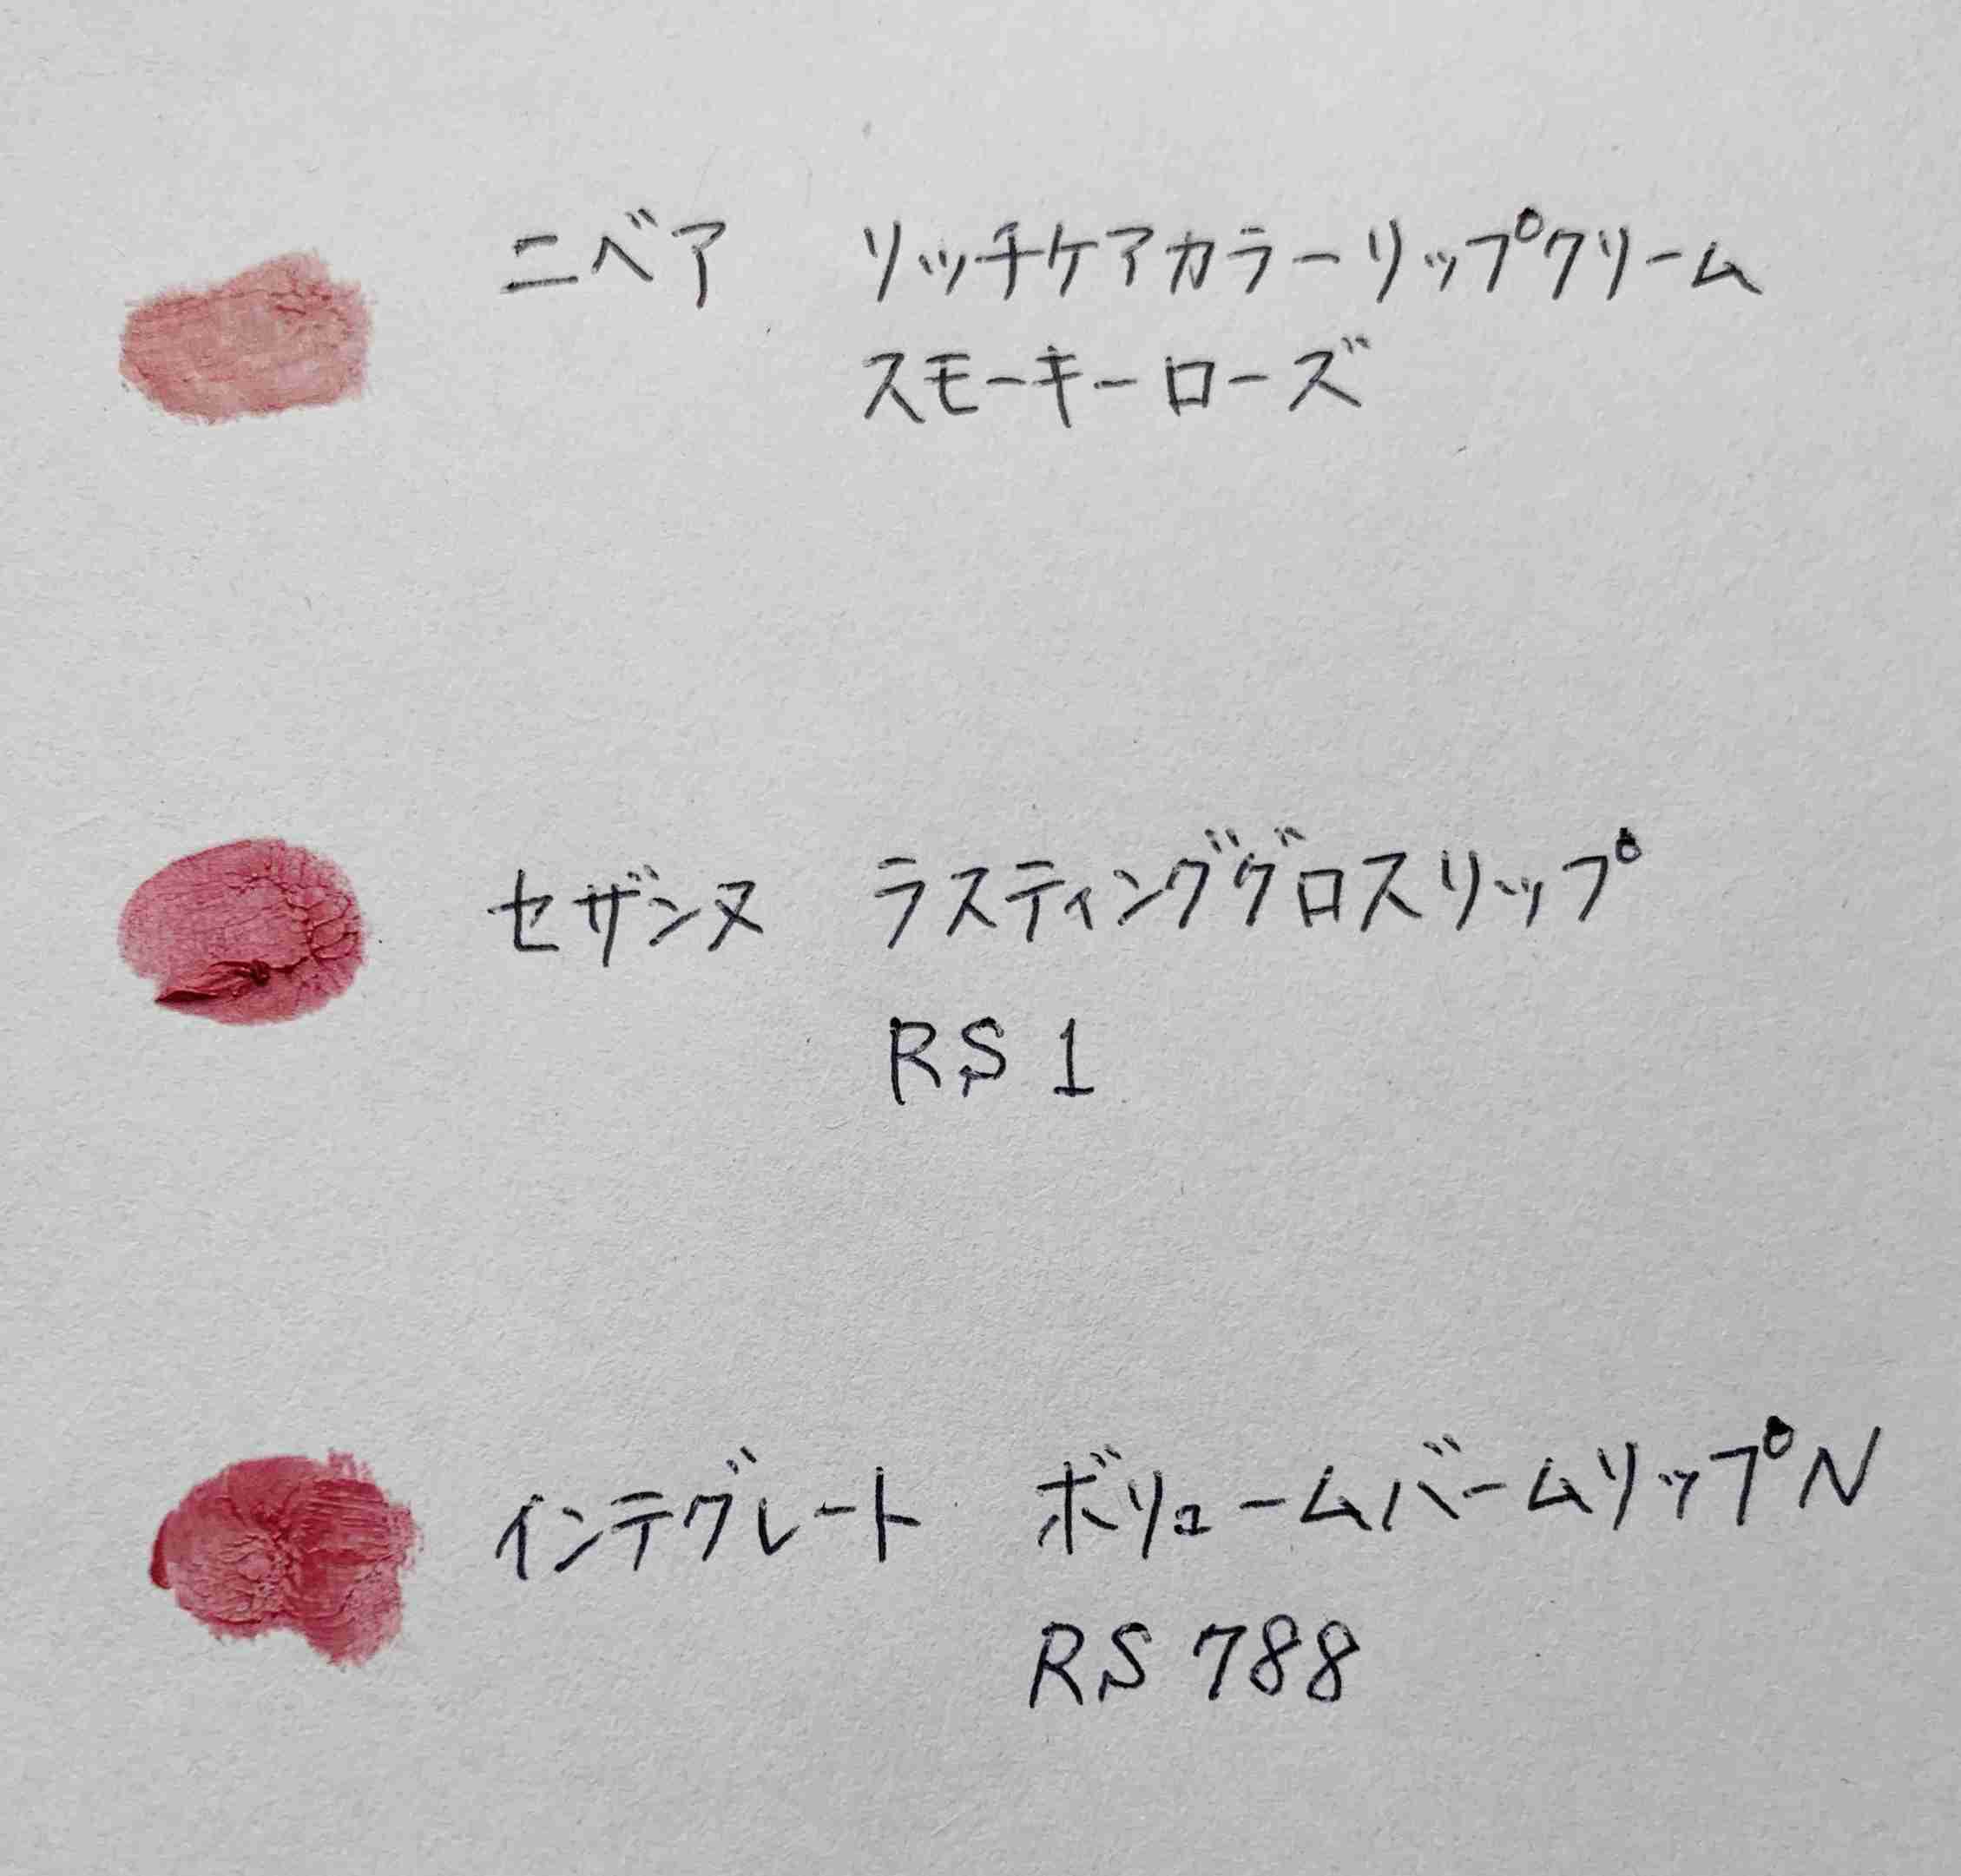 ニベア リッチケアカラーリップクリーム
スモーキーローズ
セザンヌ ラスティンググロスリップ
RS1
インテグレート ボリュームバームリップN
RS788